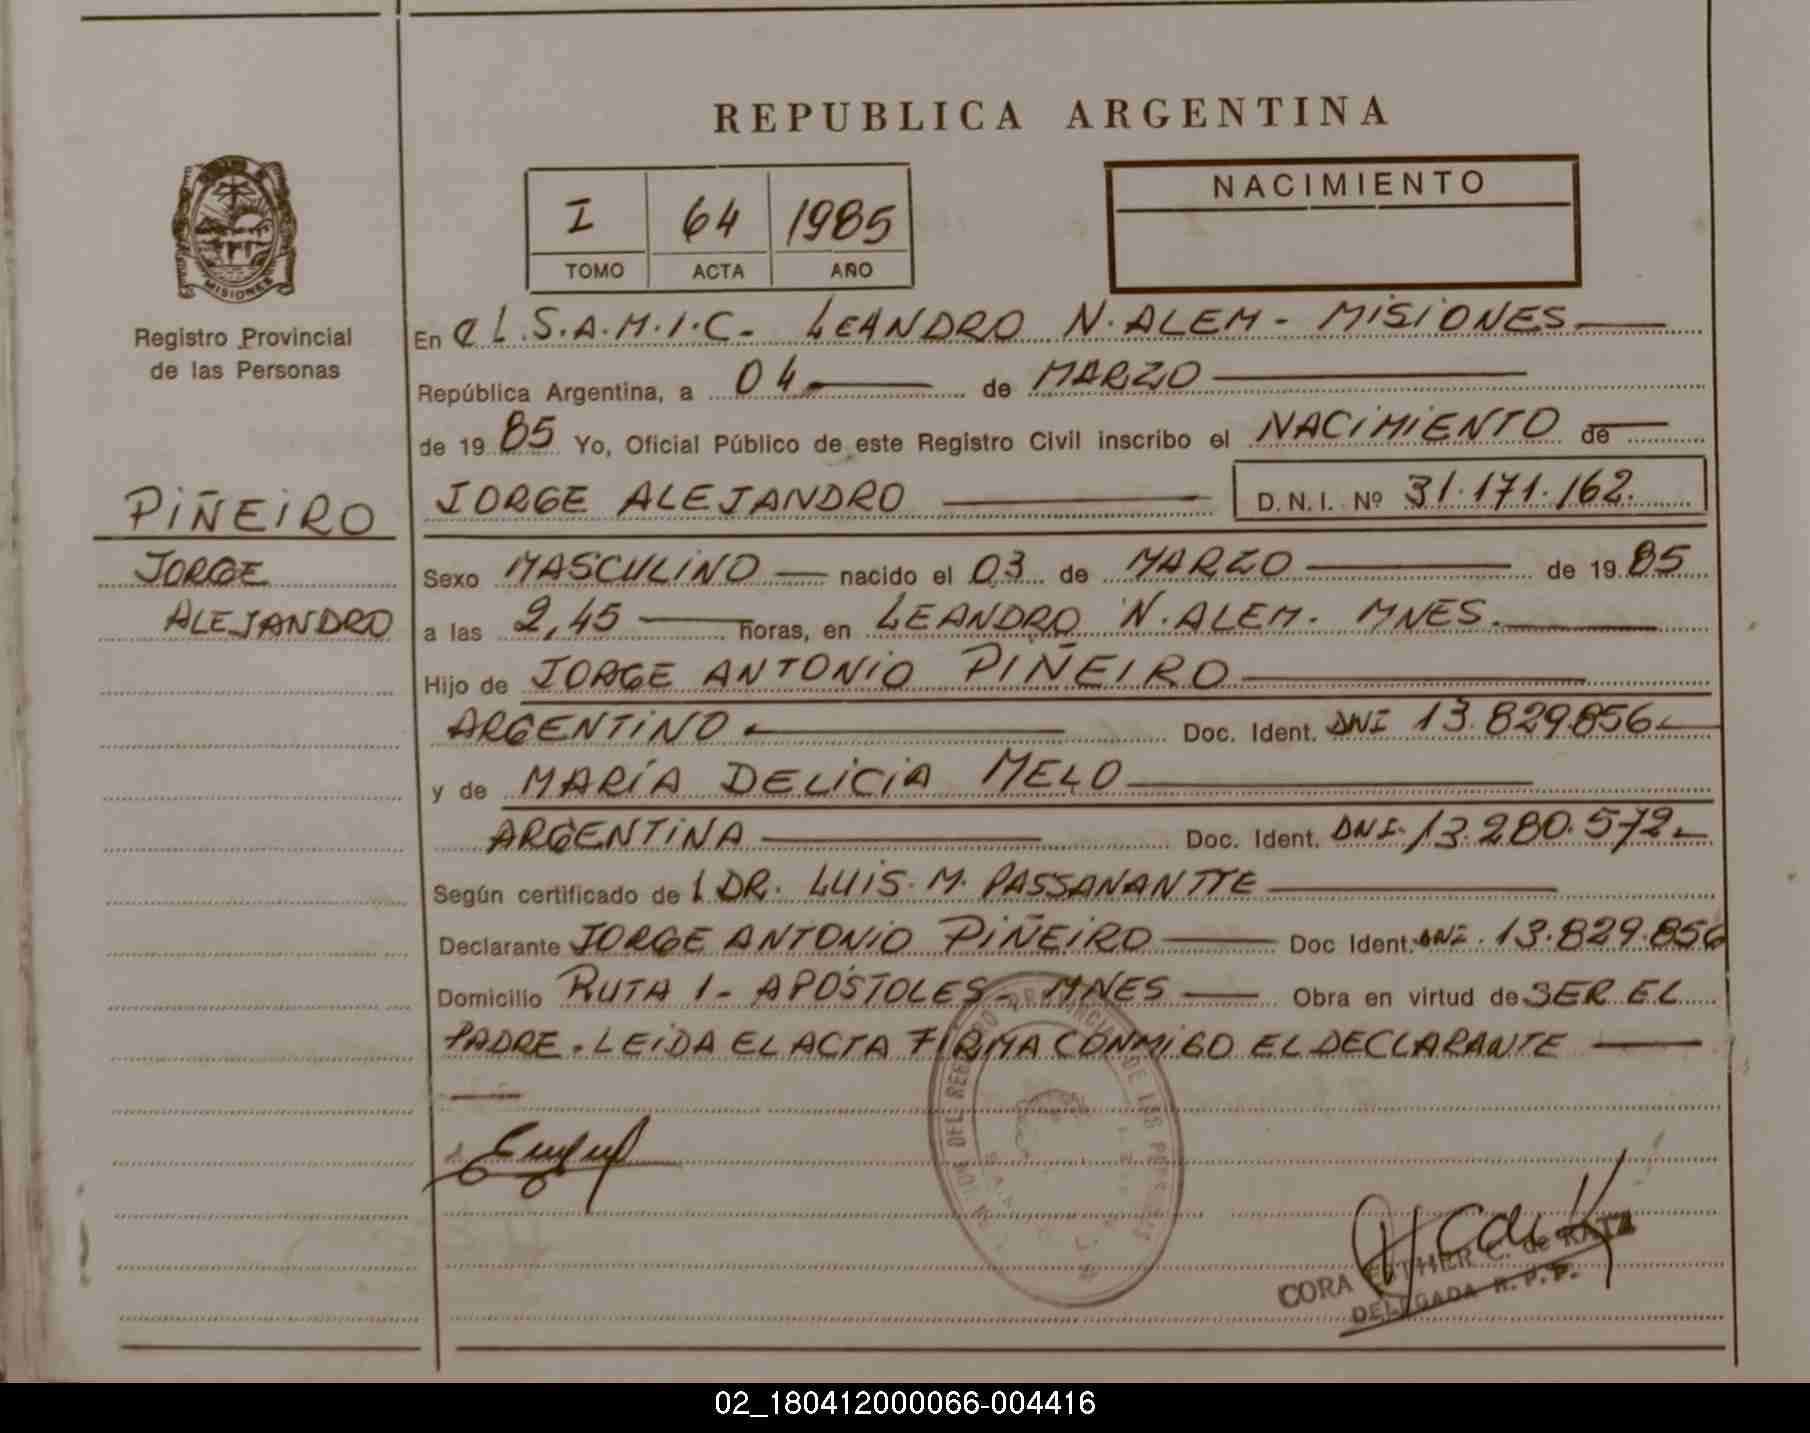 REPUBLICA ARGENTINA
I 64 1985
TOMO ACTA AÑO
NACIMIENTO
MISIONES
Registro Provincial
de las Personas
PIÑEIRO
JORGE
ALEJANDRO
En el S.A.M.I.C. LEANDRO N. ALEM - MISIONES
República Argentina, a 04 de MARZO
de 19 85 Yo, Oficial Público de este Registro Civil inscribo el NACIMIENTO de
JORGE ALEJANDRO D.N.I. Nº 31.171.162.
Sexo MASCULINO nacido el 03 de MARZO de 19 85
a las 2,45 horas, en LEANDRO N. ALEM. MNES.
Hijo de JORGE ANTONIO PIÑEIRO
ARGENTINO Doc. Ident. DNI 13.829.856
y de MARÍA DELICIA MELO
ARGENTINA Doc. Ident. DNI. 13.280.572
Según certificado de l DR. LUIS M. PASSANANTTE
Declarante JORGE ANTONIO PIÑEIRO Doc Ident. DNI. 13.829.856
Domicilio RUTA 1 - APÓSTOLES - MNES Obra en virtud de SER EL
PADRE. LEIDA EL ACTA FIRMA CONMIGO EL DECLARANTE
CORA ESTHER C. de KATZ
DELEGADA R. P. P.
02_180412000066-004416